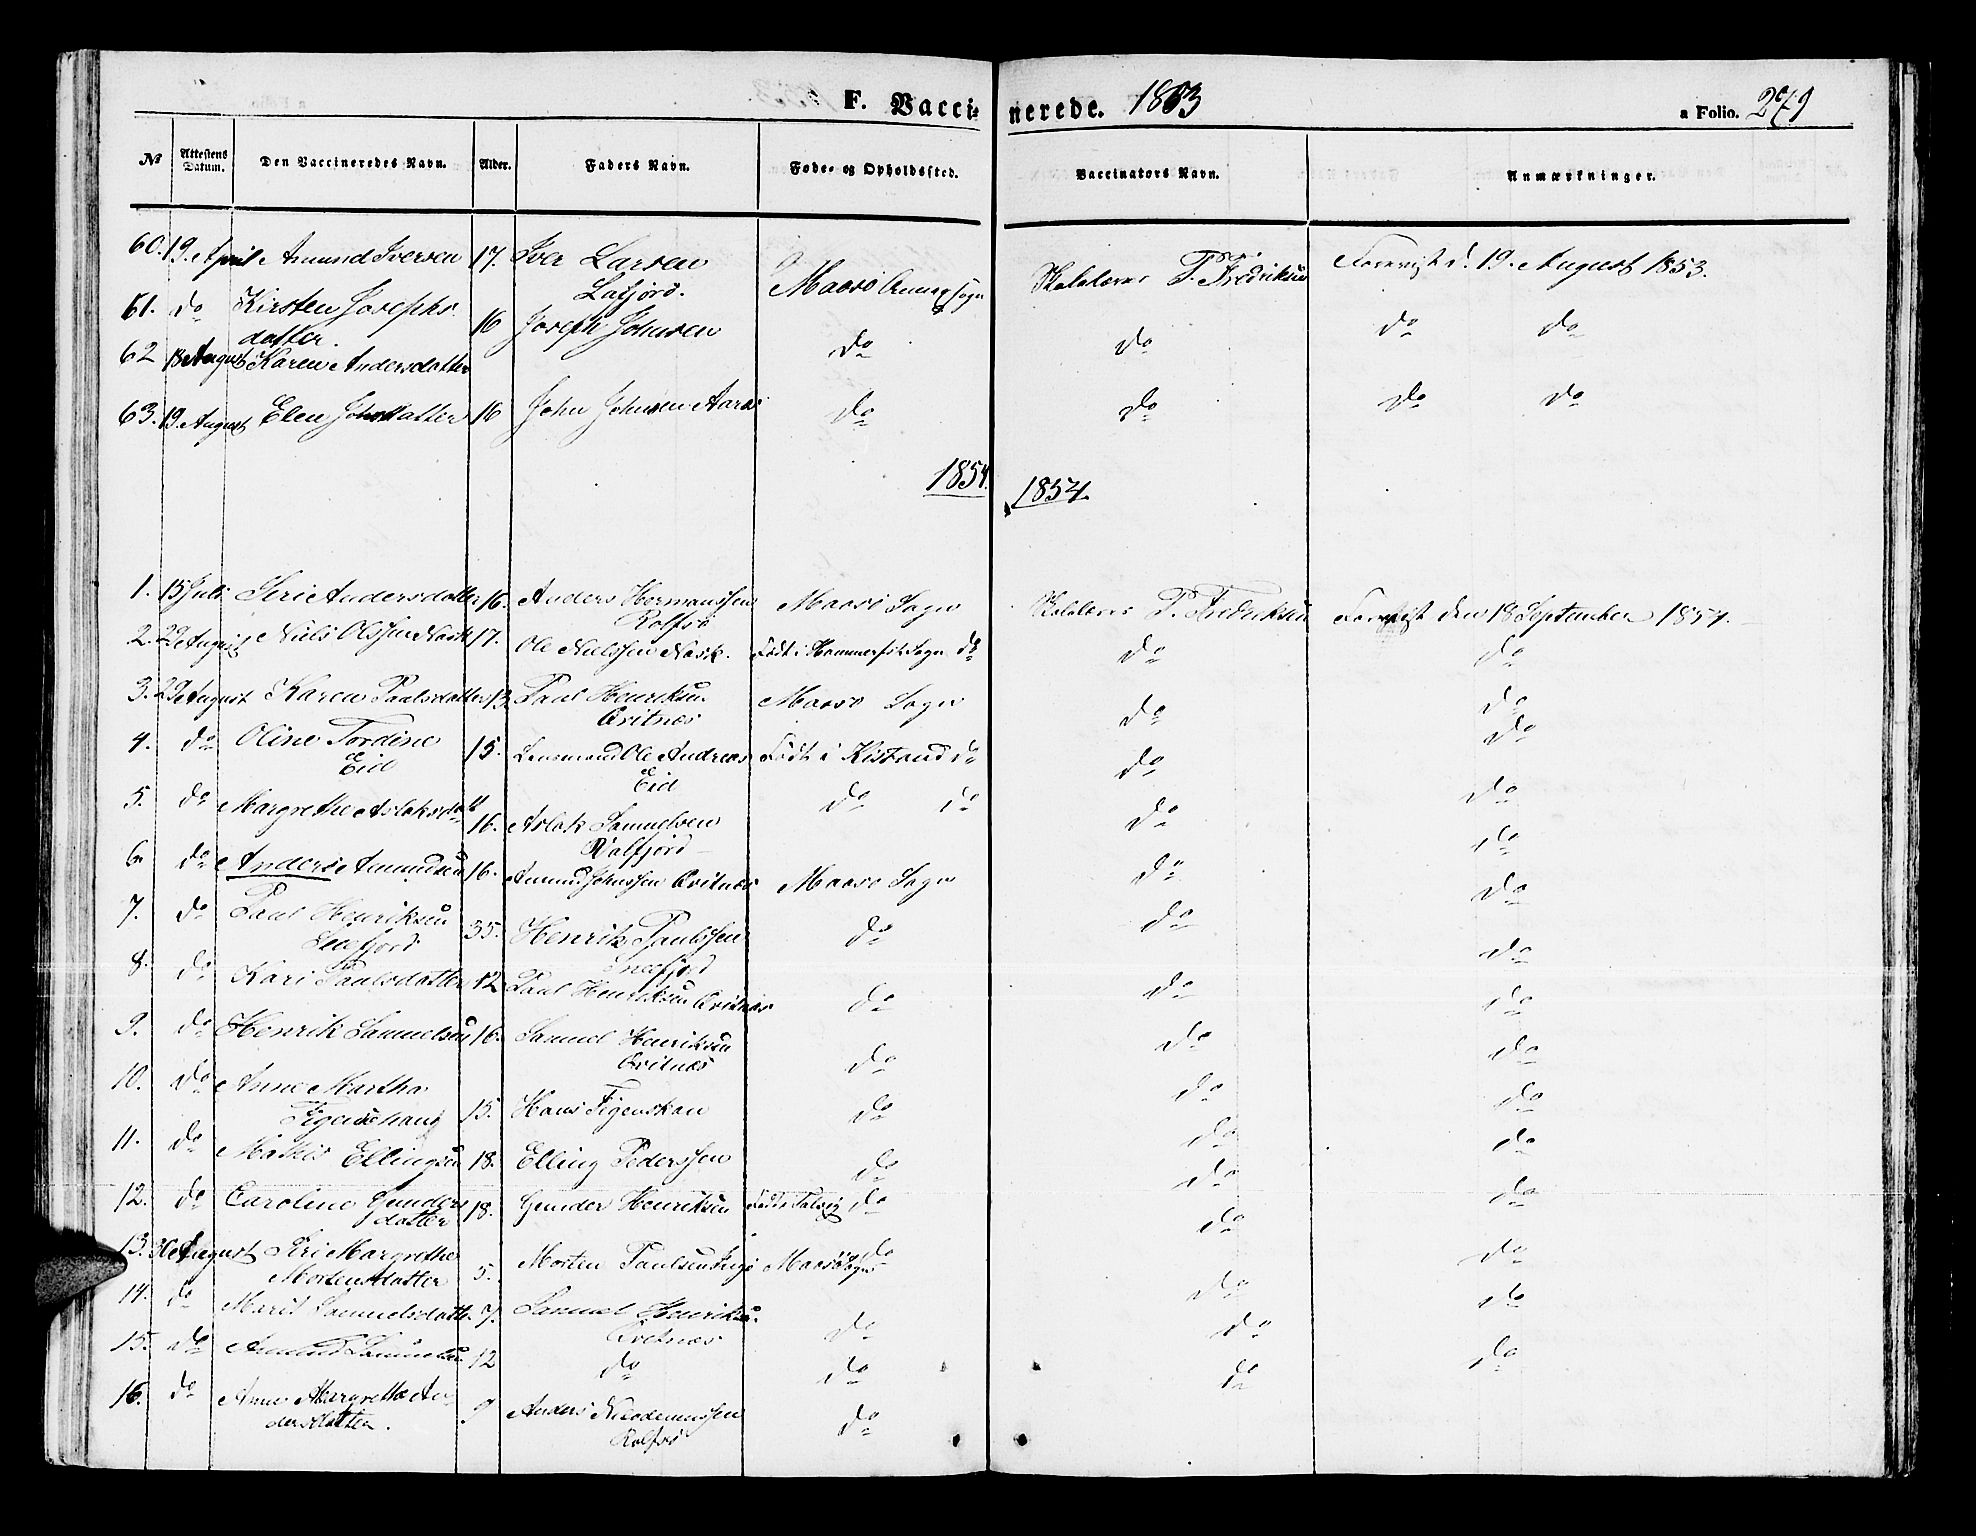 F. Vaccinerede. 1853 a Folio. 279
No Attestens Datum. Den Vaccineredes Navn. Alder. Faders Navn. Føde- og Opholdssted. Vaccinators Navn. Anmærkninger.
60. 19. April Amund Iversen 17. Iver Larsen Maasø Sogn P. Fredriksen d. 19. August 1853.
Lafjord.
61. do Kirsten Josephs 16 Joseph Johnsen do do do do
datter.
62 18 August Karen Andersdatter
63. 19. August Elen Johnsdatter 16 John Johnsen do do do do
1854. 1854.
1. 15 Juli Seri Andersdatter 16. Anders Hermanssen Maasø Sogn P. Fredriksen den 18 September 1854.
Rolfsø
2. 22 August Niels Olssen Nask 17. Ole Nielssen Nask. Født i Hammerfest Sogn do do do
3. 22 August Karen Paulsdatter 13. Paul Henriksen Maasø Sogn do do
Qvitnæs
4. do Oline Tordine 15. Lensmand Ole Andreas Født i Kistrand do do do
Eid Eid
5. do Margrethe Aslaksdatt 16. Aslak Samuelsen do do do do
6. do Anders Amundsen 16. Amund Johnssen Qvitnæs Maasø Sogn do do
7. do Paul Henriksen 35. Henrik Paulssen do do do
Sneefjord Sneefjord
8. do Kari Paulsdatter 12 Paul Henriksen Qvitnæs do do do
9. do Henrik Samuelsen 16. Samuel Henriksen do do do
Qvitnæs
10. do Anne Martha 15. Hans Figenskau do do do
Figenschaug
11. do Mathis Ellingsen 18. Elling Pederssen do do do
12. do Caroline Gunders 18. Gunder Henriksen Født i Talvig do do do
datter
13. 30 August Siri Margrethe 5. Morten Paulsen Maasø Sogn do do
Mortensdatter
14. do Marit Samuelsdatt. 7. Samuel Henriksen do do do
Qvitnæs
15. do Amund Samuelsen 12 do do do do
16. do Anne Margrethe An 9 Anders Nicodemussen do do
dersdatter. Rolfsø